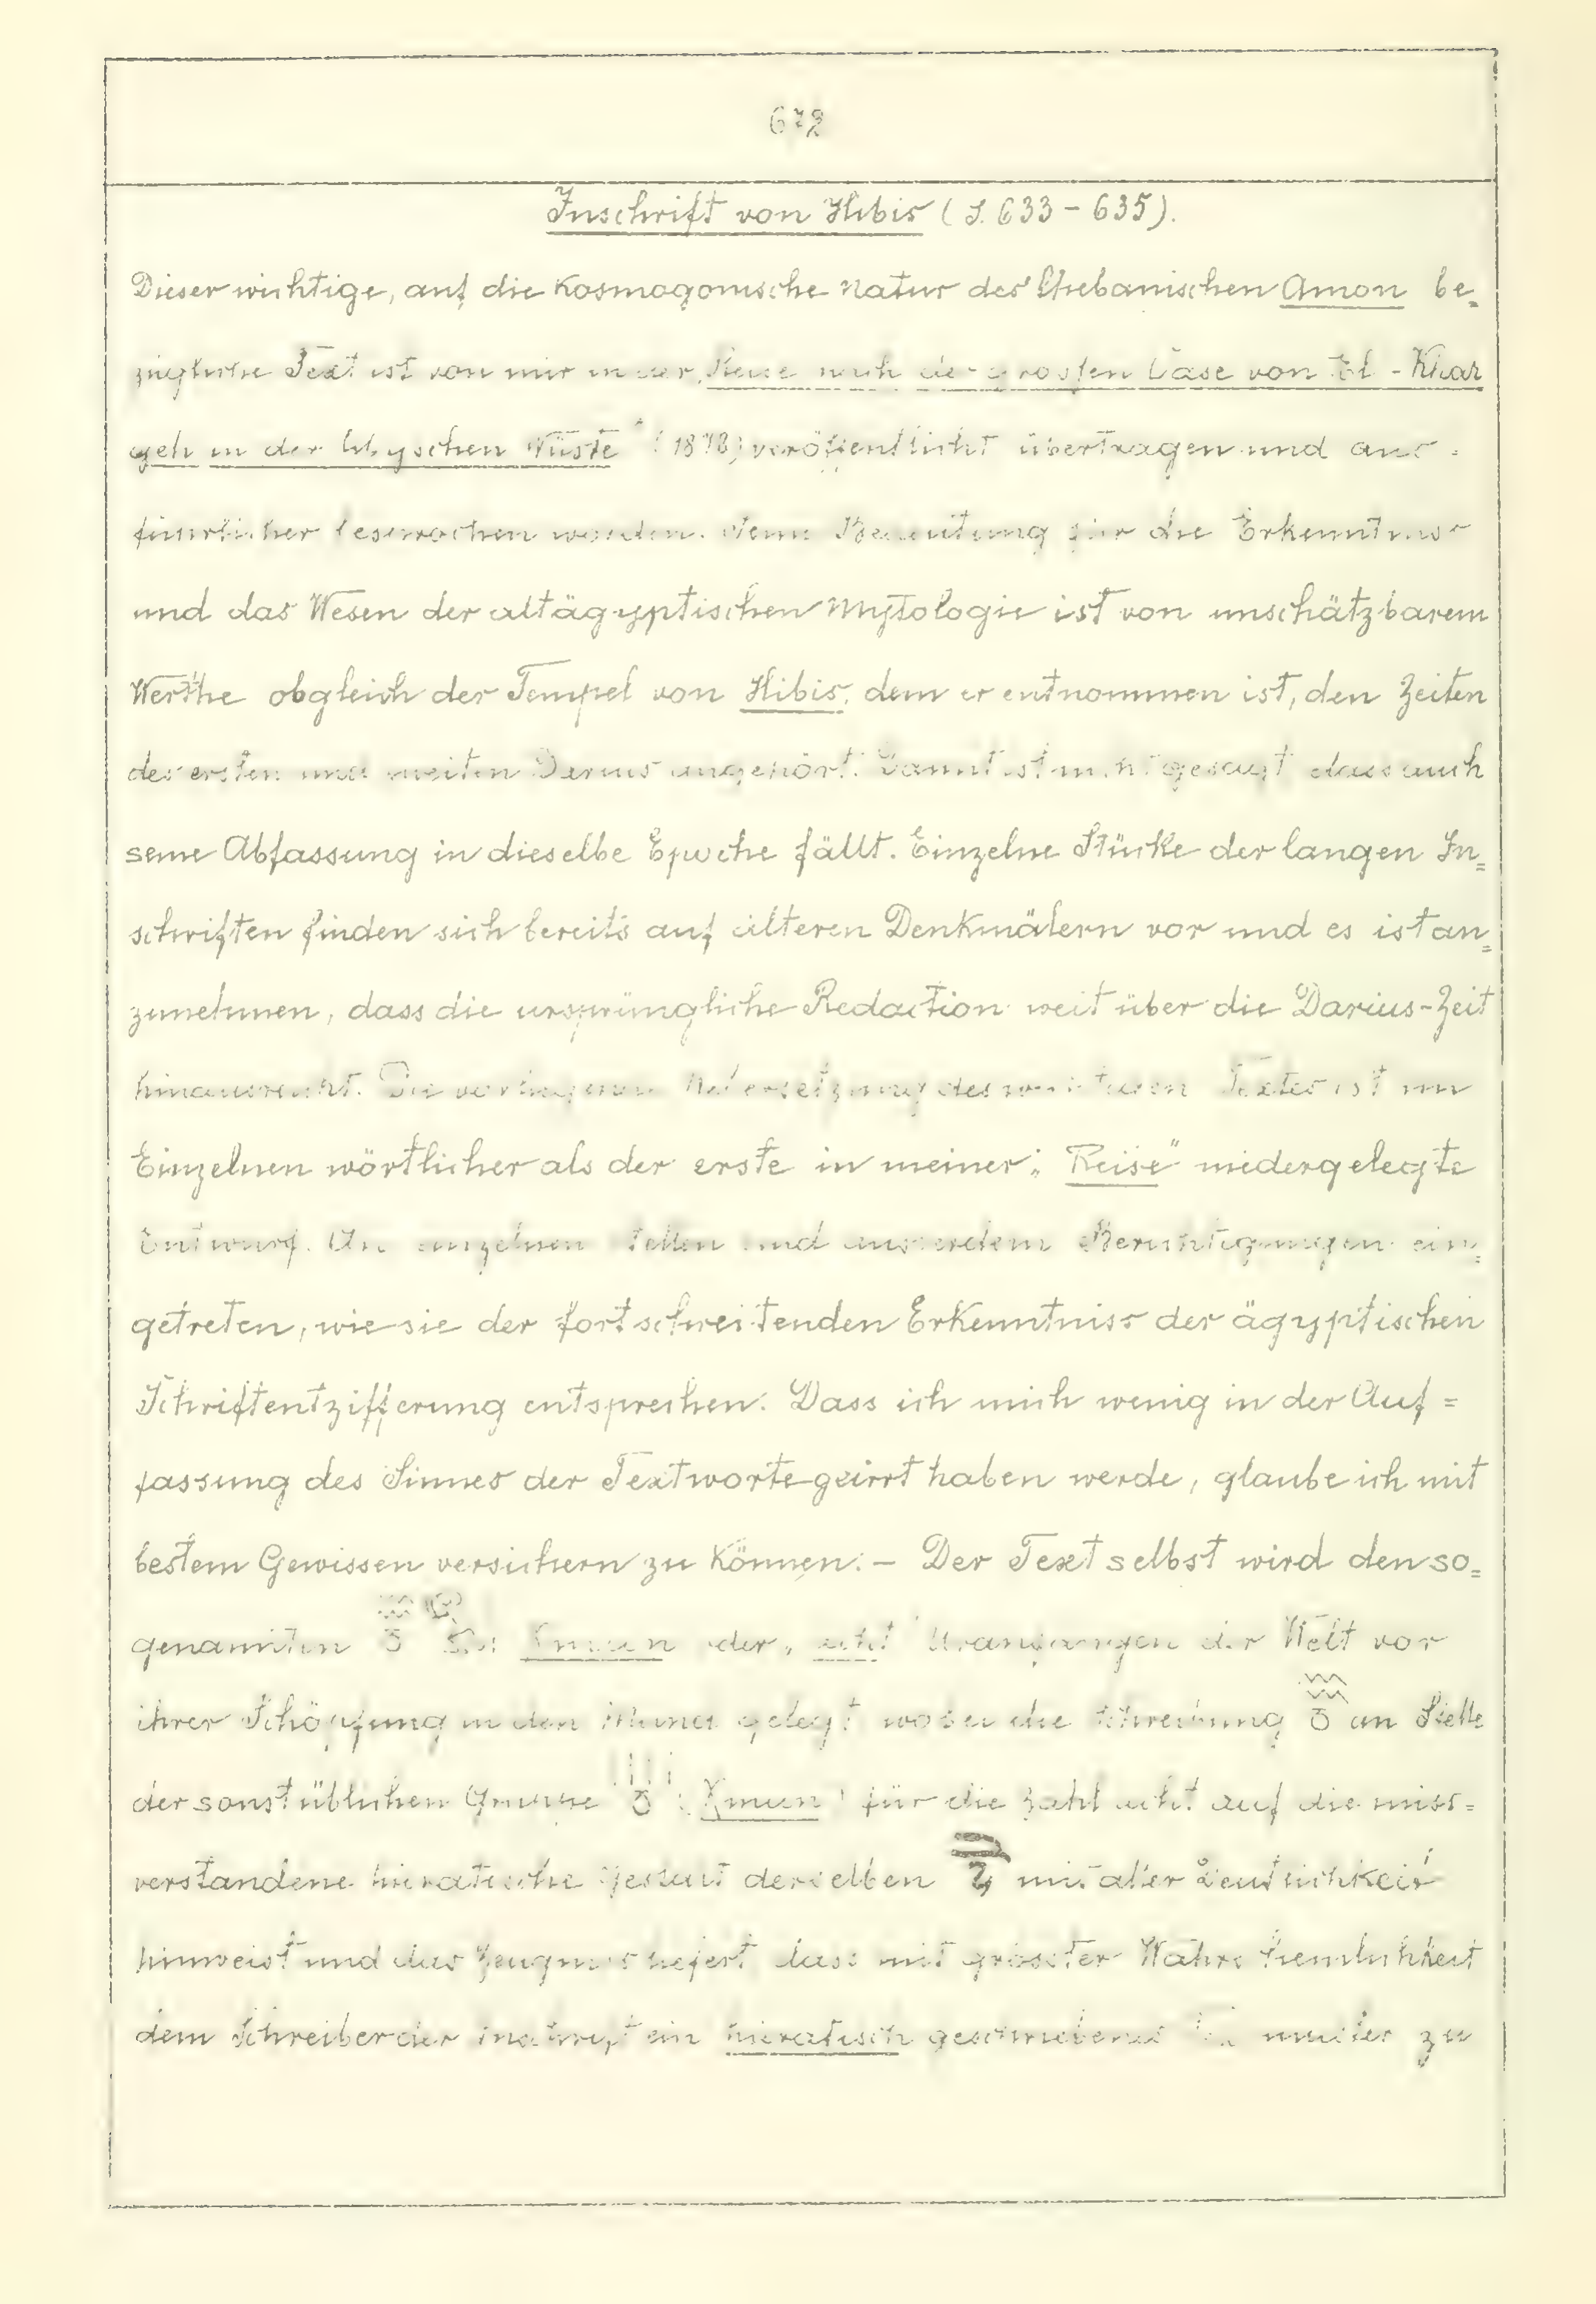 672
Inschrift von Hibis (S. 633 - 635).
Dieser wichtige, auf die Kosmogonische Natur des thebanischen Amon be=
zügliche Text ist von mir in der „Reise nach der grossen Oase von El - Khar
geh in der libyschen Wüste“ (1878) veröffentlicht übertragen und aus =
führlicher besprochen worden. Seine Bedeutung für die Erkenntniss
und das Wesen der altägyptischen Mytologie ist von unschätzbarem
Werthe obgleich der Tempel von Hibis, dem er entnommen ist, den Zeiten
des ersten und zweiten Darius angehört. Damit ist nicht gesagt dass auch
seine Abfassung in dieselbe Epoche fällt. Einzelne Stücke der langen In=
schriften finden sich bereits auf älteren Denkmälern vor und es ist an=
zunehmen, dass die ursprüngliche Redaction weit über die Darius-Zeit
hinausreicht. Die des wichtigen Textes ist im
Einzelnen wörtlicher als der erste in meiner „Reise“ niedergelegte
Entwurf. An einzelnen Stellen sind ausserdem Berichtigungen ein=
getreten, wie sie der fortschreitenden Erkenntniss der ägyptischen
Schriftentzifferung entsprechen. Dass ich mich wenig in der Auf =
fassung des Sinnes der Textworte geirrt haben werde, glaube ich mit
bestem Gewissen versichern zu können. – Der Text selbst wird den so=
genannten Xmun oder „acht“ Uranfängen der Welt vor
ihrer Schöpfung in den Mund gelegt wobei die Schreibung an Stelle
der sonst üblichen Gruppe Xmun für die Zahl acht auf die miss=
verstandene hieratische Gestalt derselben mit aller Deutlichkeit
hinweist und das Zeugniss liefert dass mit grösster Wahrscheinlichkeit
dem Schreiber der Inschrift ein hieratisch geschriebenes zu